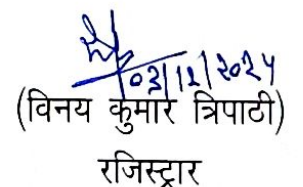 03/12/2024
(विनय कुमार त्रिपाठी)
रजिस्ट्रार